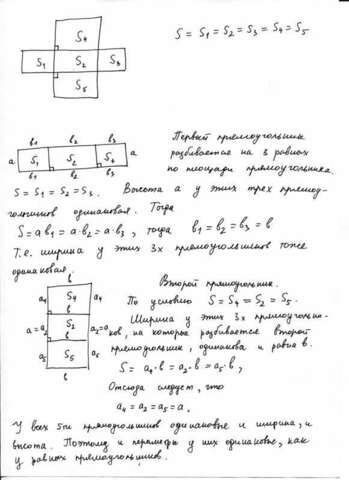 S₄
S = S₁ = S₂ = S₃ = S₄ = S₅
S₁ S₂ S₃
S₅
Первый прямоугольник
b₁ b₂ b₃
разбивается на 3 равных
a S₁ S₂ S₄ a
по площади прямоугольника.
S = S₁ = S₂ = S₃. Высота a у этих трех прямоу-
гольников одинаковая. Тогда
S = a b₁ = a · b₂ = a · b₃, тогда b₁ = b₂ = b₃ = b
Т.е. ширина у этих 3х прямоугольников тоже
одинаковая.
b
Второй прямоугольник.
a₄ S₄ a₄
По условию S = S₄ = S₂ = S₅.
b
Ширина у этих 3х прямоугольни-
a = a₂ S₂ a₂ = a
ков, на которые разбивается второй
b
прямоугольник, одинакова и равна b.
a₅ S₅ a₅
S = a₄ · b = a₂ · b = a₅ · b,
b
Отсюда следует, что
a₄ = a₂ = a₅ = a.
У всех 5ти прямоугольников одинаковые и ширина, и
высота. Поэтому и периметры у них одинаковые, как
у равных прямоугольников.